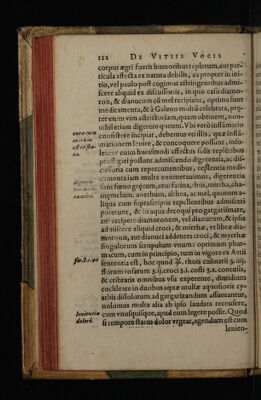 122 DE VITIIS VOCIS
corpus ægri fuerit humoribus repletum, aut par-
ticula affecta ex natura debilis, ea propter in ini-
tio, vel paulo post cogimur astringentibus admi-
scere aliquid ex discussoriis, in quo casu diamo-
ron, & dianucum cū mel recipiant, optima sunt
medicamenta, & à Galeno multū celebrata, præ-
ter enim vim astrictoriam, quam obtinent, non-
nihil etiam digerere queunt. Vbi verò inflamatio
consistere incipiat, debemus
mationem lenire, & concoquere possunt,
lenter enim huiusmodi affectus solis
profligari possunt, admiscendo digerentia, ac dis-
cussoria cum repercutientibus,
camenta iam multa enumeravimus, digerentia
sunt fœnū græcum, orui farina, irus, mirrha, cha-
mæmelum, anethum, abhea, ac mel, quorum a-
liqua cum suprascriptis repellentibus admisceri
poterunt, & in aqua decoqui pro gargarismate,
aut recipere diamoronem, vel dianucum, & ipsis
admiscere aliquid croci, & mirrhæ, vel libræ dia-
moronis, aut dianuci addentes croci, & myrrhæ
singulorum scrupulum vnum: optimum phar-
macum, cum in principio, tum in vigore ex Aetii
sententia est, hoc quod ℞. thuris
florum rosarum ʒ.ij. croci ʒ.i. costi ʒ.i. contusis,
& cribratis omnibus vsu exprompte, dimidium
cochleare in duobus aquæ mulsæ aquosioris cy-
athis dissolutum ad gargarizandum assumantur,
nolumus multa alia ab ipso laudata recensere,
cum vnusquisque, apud eum legere possit. Quod
si tempore status dolor vrgeat, agendum est cum
lenien-
cura cum
morbus
est in sta-
tu.
digeren-
tia medi-
camenta.
ser. 3. c. 40
lenientia
dolorē.